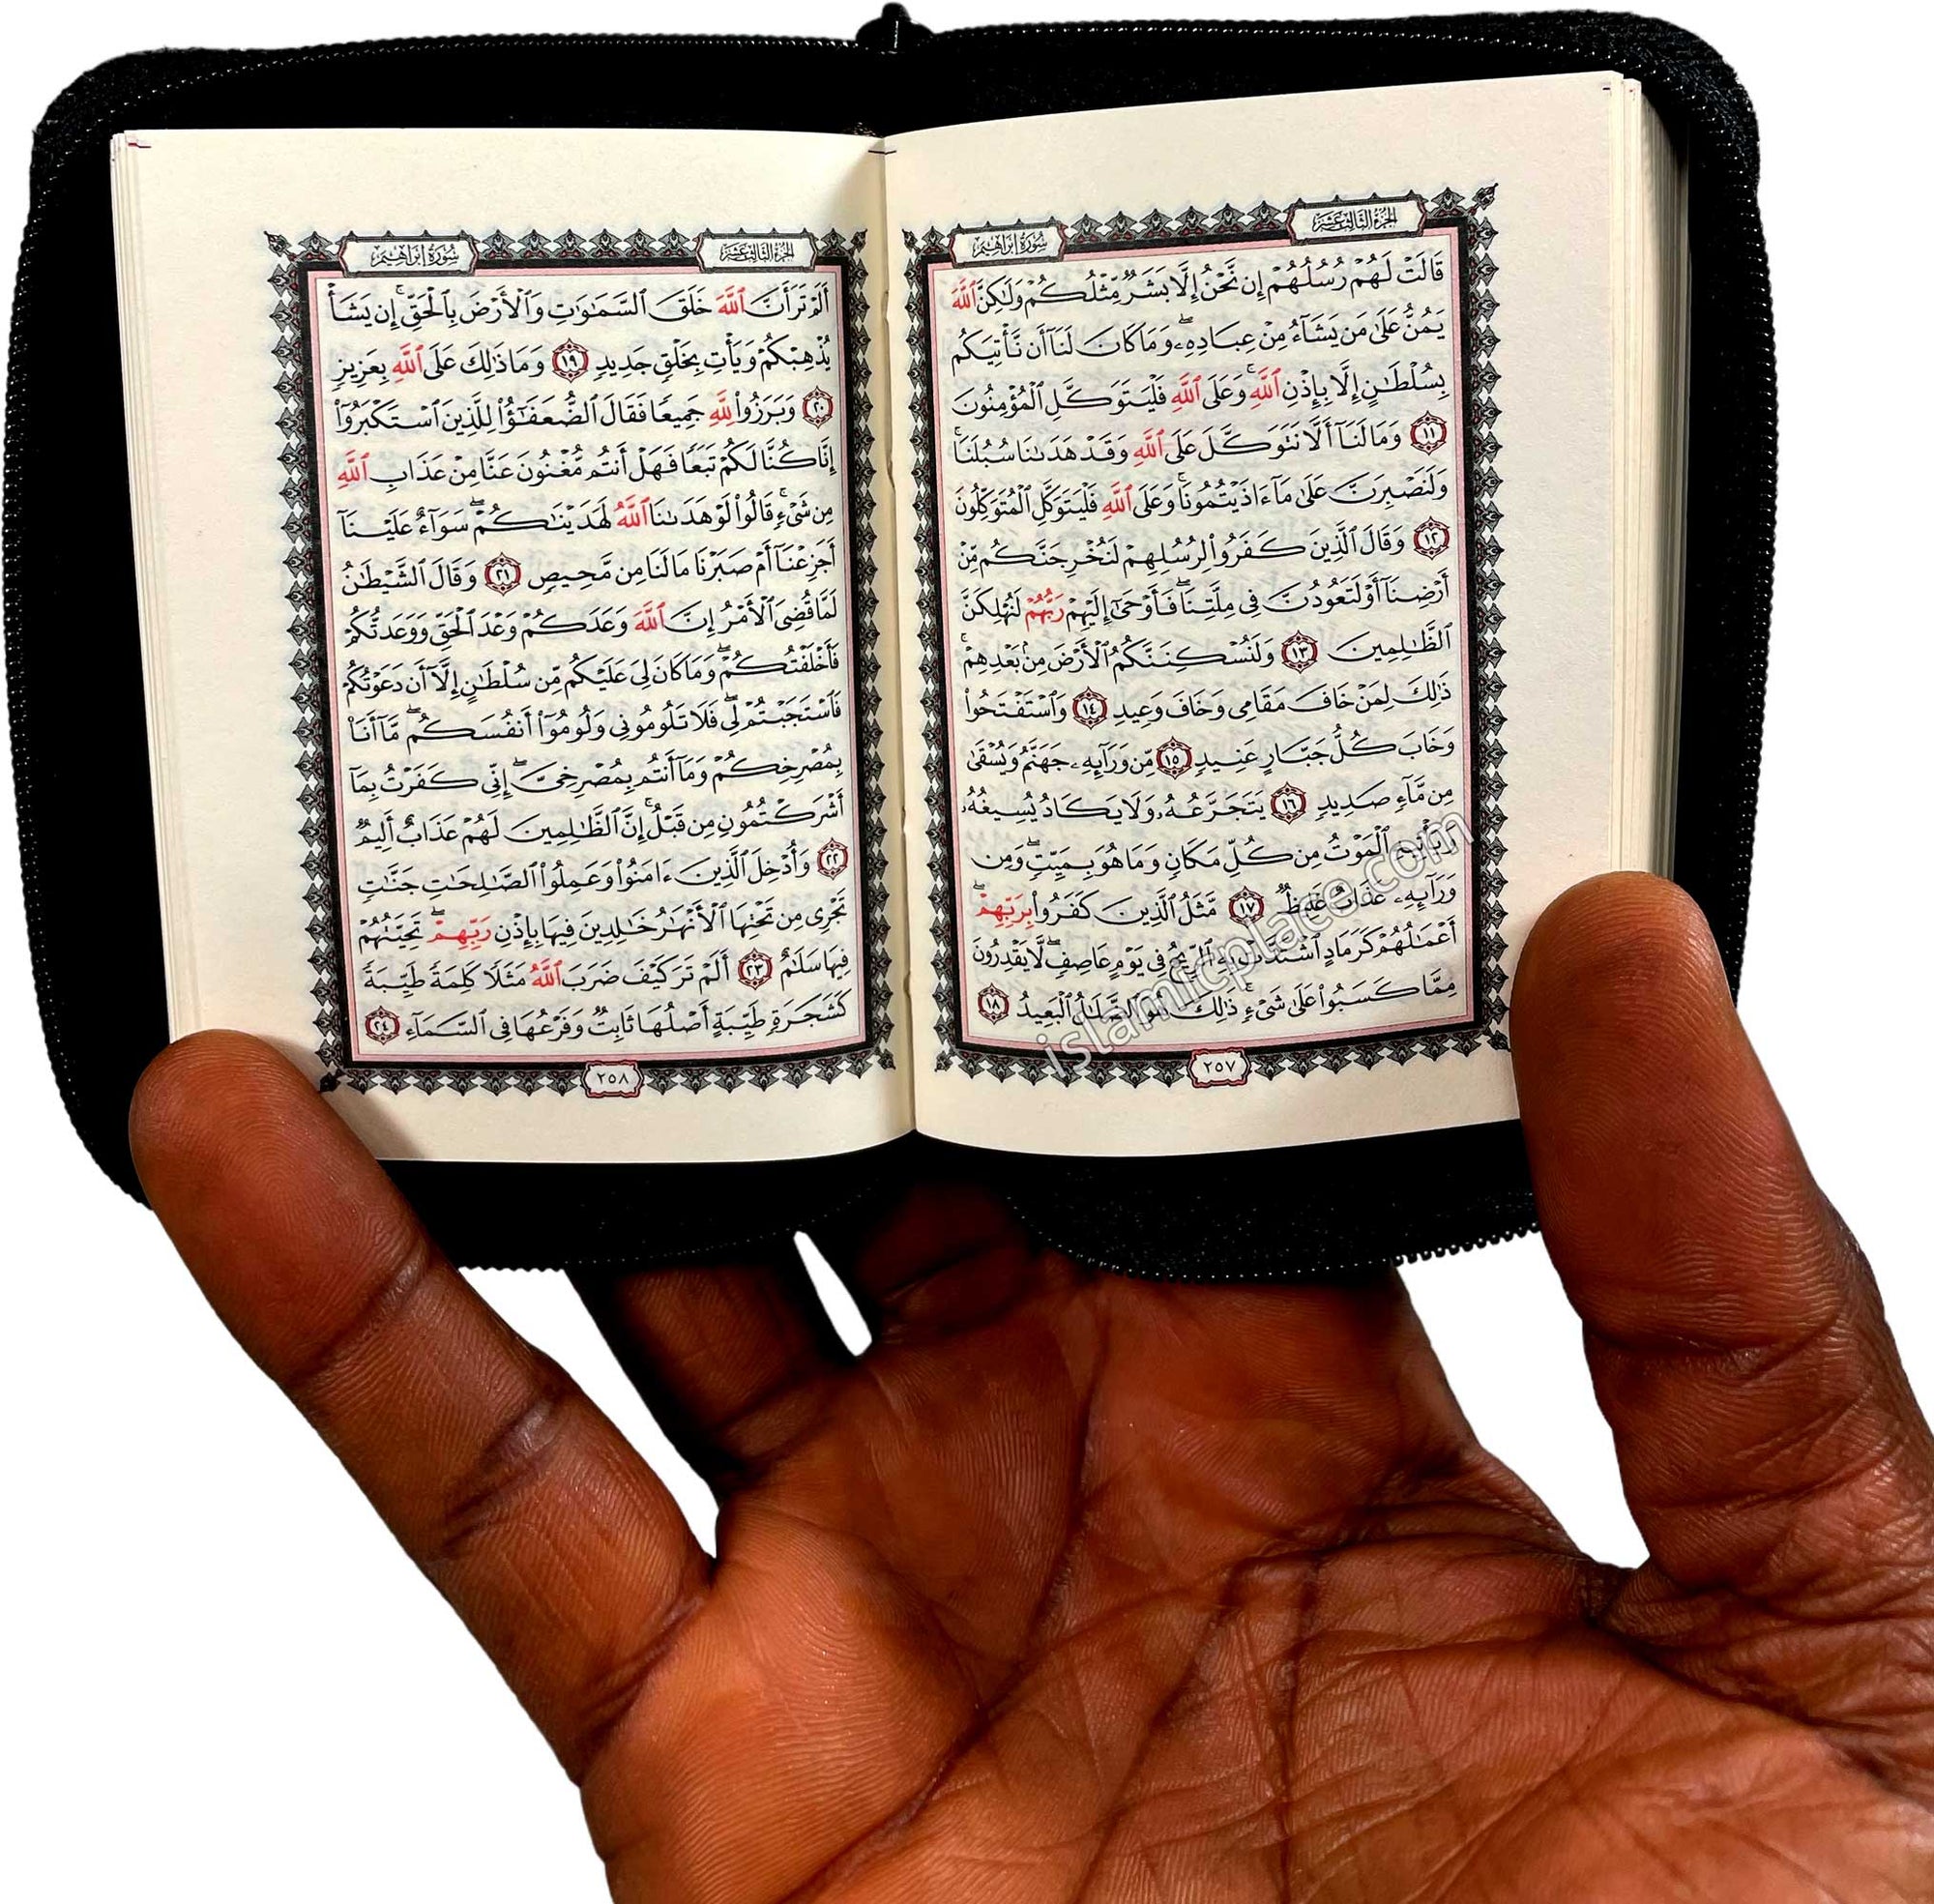 الجزء الثالث عشر
سورة إبراهيم
قَالَتْ لَهُمْ رُسُلُهُمْ إِن نَّحْنُ إِلَّا بَشَرٌ مِّثْلُكُمْ وَلَٰكِنَّ ٱللَّهَ
يَمُنُّ عَلَىٰ مَن يَشَآءُ مِنْ عِبَادِهِۦ ۖ وَمَا كَانَ لَنَآ أَن نَّأْتِيَكُم
بِسُلْطَٰنٍ إِلَّا بِإِذْنِ ٱللَّهِ ۚ وَعَلَى ٱللَّهِ فَلْيَتَوَكَّلِ ٱلْمُؤْمِنُونَ
١١ وَمَا لَنَآ أَلَّا نَتَوَكَّلَ عَلَى ٱللَّهِ وَقَدْ هَدَىٰنَا سُبُلَنَا ۚ
وَلَنَصْبِرَنَّ عَلَىٰ مَآ ءَاذَيْتُمُونَا ۚ وَعَلَى ٱللَّهِ فَلْيَتَوَكَّلِ ٱلْمُتَوَكِّلُونَ
١٢ وَقَالَ ٱلَّذِينَ كَفَرُوا۟ لِرُسُلِهِمْ لَنُخْرِجَنَّكُم مِّنْ
أَرْضِنَآ أَوْ لَتَعُودُنَّ فِى مِلَّتِنَا ۖ فَأَوْحَىٰٓ إِلَيْهِمْ رَبُّهُمْ لَنُهْلِكَنَّ
ٱلظَّٰلِمِينَ ١٣ وَلَنُسْكِنَنَّكُمُ ٱلْأَرْضَ مِنۢ بَعْدِهِمْ ۚ
ذَٰلِكَ لِمَنْ خَافَ مَقَامِى وَخَافَ وَعِيدِ ١٤ وَٱسْتَفْتَحُوا۟
وَخَابَ كُلُّ جَبَّارٍ عَنِيدٍ ١٥ مِّن وَرَآئِهِۦ جَهَنَّمُ وَيُسْقَىٰ
مِن مَّآءٍ صَدِيدٍ ١٦ يَتَجَرَّعُهُۥ وَلَا يَكَادُ يُسِيغُهُۥ
وَيَأْتِيهِ ٱلْمَوْتُ مِن كُلِّ مَكَانٍ وَمَا هُوَ بِمَيِّتٍ ۖ وَمِن
وَرَآئِهِۦ عَذَابٌ غَلِيظٌ ١٧ مَّثَلُ ٱلَّذِينَ كَفَرُوا۟ بِرَبِّهِمْ ۖ
أَعْمَٰلُهُمْ كَرَمَادٍ ٱشْتَدَّتْ بِهِ ٱلرِّيحُ فِى يَوْمٍ عَاصِفٍ ۖ لَّا يَقْدِرُونَ
مِمَّا كَسَبُوا۟ عَلَىٰ شَىْءٍ ۚ ذَٰلِكَ هُوَ ٱلضَّلَٰلُ ٱلْبَعِيدُ ١٨
٢٥٧
الجزء الثالث عشر
سورة إبراهيم
أَلَمْ تَرَ أَنَّ ٱللَّهَ خَلَقَ ٱلسَّمَٰوَٰتِ وَٱلْأَرْضَ بِٱلْحَقِّ ۚ إِن يَشَأْ
يُذْهِبْكُمْ وَيَأْتِ بِخَلْقٍ جَدِيدٍ ١٩ وَمَا ذَٰلِكَ عَلَى ٱللَّهِ بِعَزِيزٍ
٢٠ وَبَرَزُوا۟ لِلَّهِ جَمِيعًا فَقَالَ ٱلضُّعَفَٰٓؤُا۟ لِلَّذِينَ ٱسْتَكْبَرُوٓا۟
إِنَّا كُنَّا لَكُمْ تَبَعًا فَهَلْ أَنتُم مُّغْنُونَ عَنَّا مِنْ عَذَابِ ٱللَّهِ
مِن شَىْءٍ ۚ قَالُوا۟ لَوْ هَدَىٰنَا ٱللَّهُ لَهَدَيْنَٰكُمْ ۖ سَوَآءٌ عَلَيْنَآ
أَجَزِعْنَآ أَمْ صَبَرْنَا مَا لَنَا مِن مَّحِيصٍ ٢١ وَقَالَ ٱلشَّيْطَٰنُ
لَمَّا قُضِىَ ٱلْأَمْرُ إِنَّ ٱللَّهَ وَعَدَكُمْ وَعْدَ ٱلْحَقِّ وَوَعَدتُّكُمْ
فَأَخْلَفْتُكُمْ ۖ وَمَا كَانَ لِىَ عَلَيْكُم مِّن سُلْطَٰنٍ إِلَّآ أَن دَعَوْتُكُمْ
فَٱسْتَجَبْتُمْ لِى ۖ فَلَا تَلُومُونِى وَلُومُوٓا۟ أَنفُسَكُم ۖ مَّآ أَنَا۠
بِمُصْرِخِكُمْ وَمَآ أَنتُم بِمُصْرِخِىَّ ۖ إِنِّى كَفَرْتُ بِمَآ
أَشْرَكْتُمُونِ مِن قَبْلُ ۗ إِنَّ ٱلظَّٰلِمِينَ لَهُمْ عَذَابٌ أَلِيمٌ
٢٢ وَأُدْخِلَ ٱلَّذِينَ ءَامَنُوا۟ وَعَمِلُوا۟ ٱلصَّٰلِحَٰتِ جَنَّٰتٍ
تَجْرِى مِن تَحْتِهَا ٱلْأَنْهَٰرُ خَٰلِدِينَ فِيهَا بِإِذْنِ رَبِّهِمْ ۖ تَحِيَّتُهُمْ
فِيهَا سَلَٰمٌ ٢٣ أَلَمْ تَرَ كَيْفَ ضَرَبَ ٱللَّهُ مَثَلًا كَلِمَةً طَيِّبَةً
كَشَجَرَةٍ طَيِّبَةٍ أَصْلُهَا ثَابِتٌ وَفَرْعُهَا فِى ٱلسَّمَآءِ ٢٤
٢٥٨
islamicplace.com